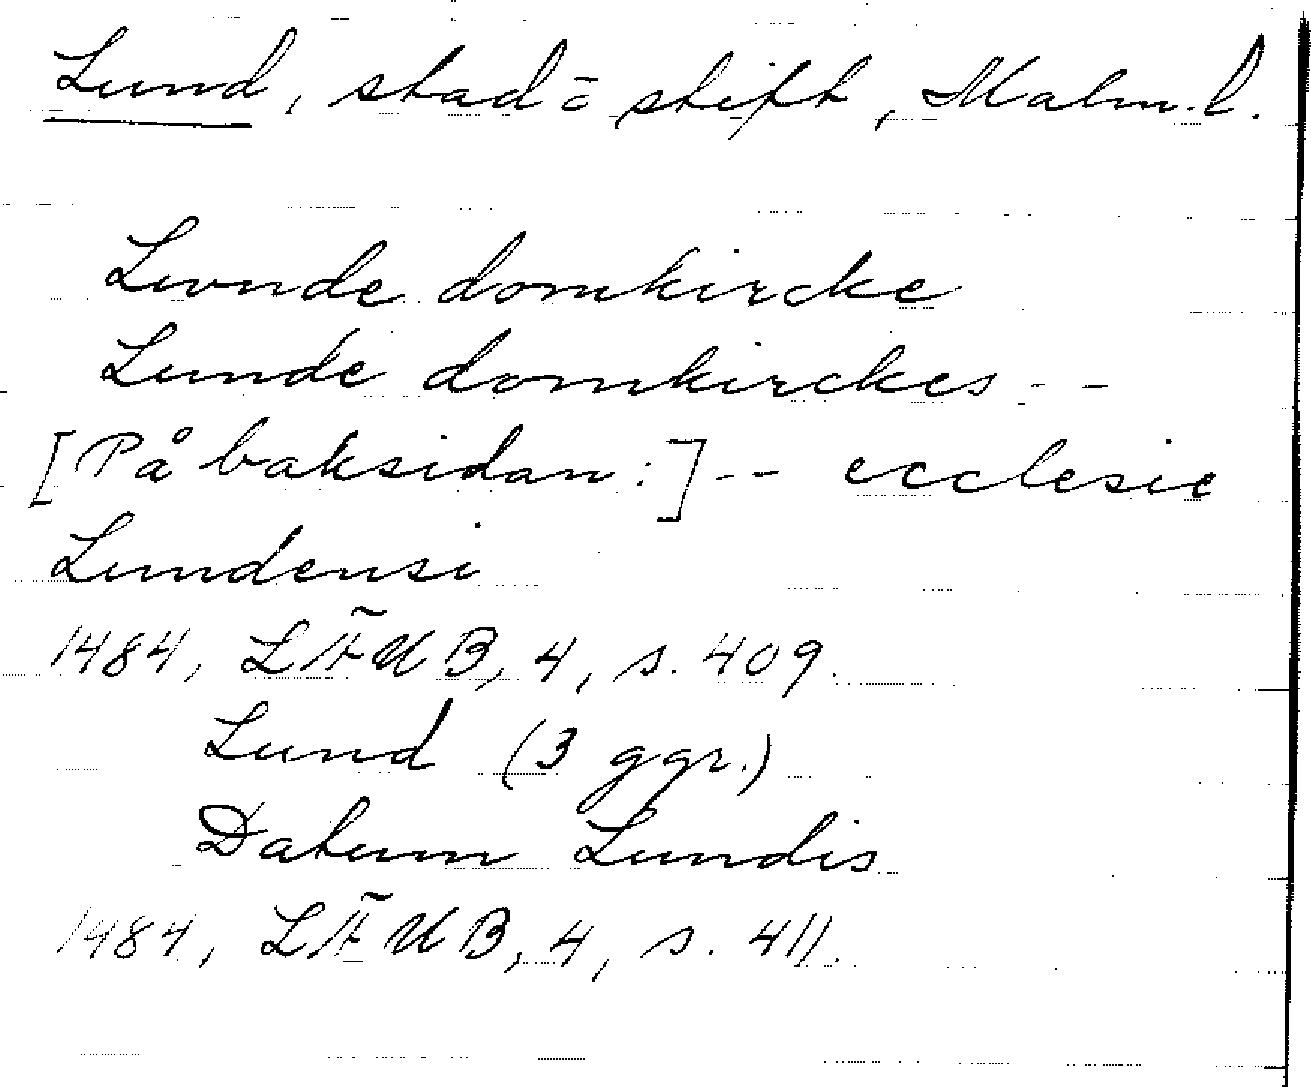 Lund, stad o stift, Malm. l.
Lvnde domkircke
Lunde domkirckes - -
[På baksidan:] - - ecclesie
Lundensi
1484, LÄUB, 4, s. 409.
Lund (3 ggr.)
Datum Lundis
1484, LÄUB, 4, s. 411.